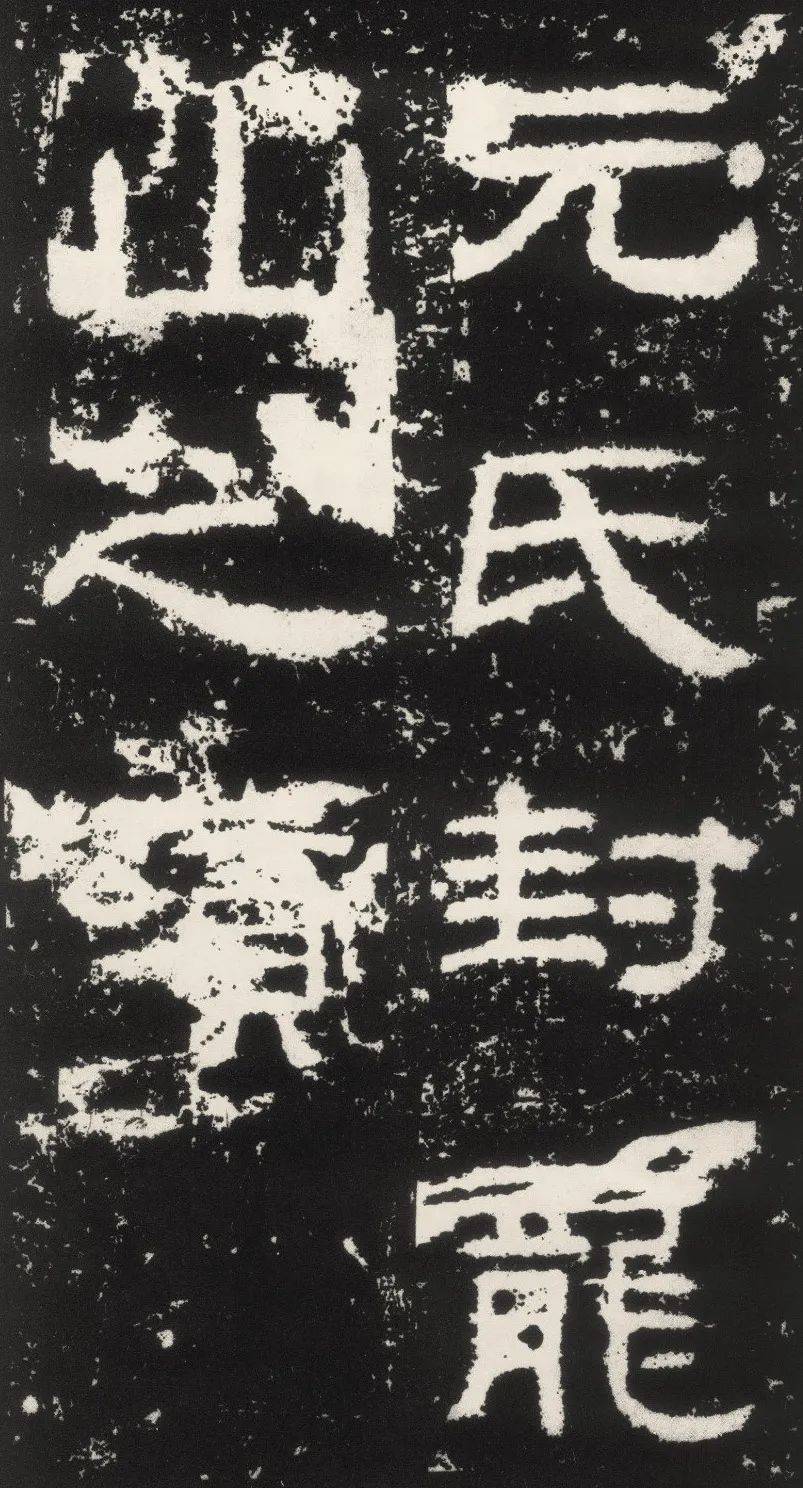 元氏封龍
山之